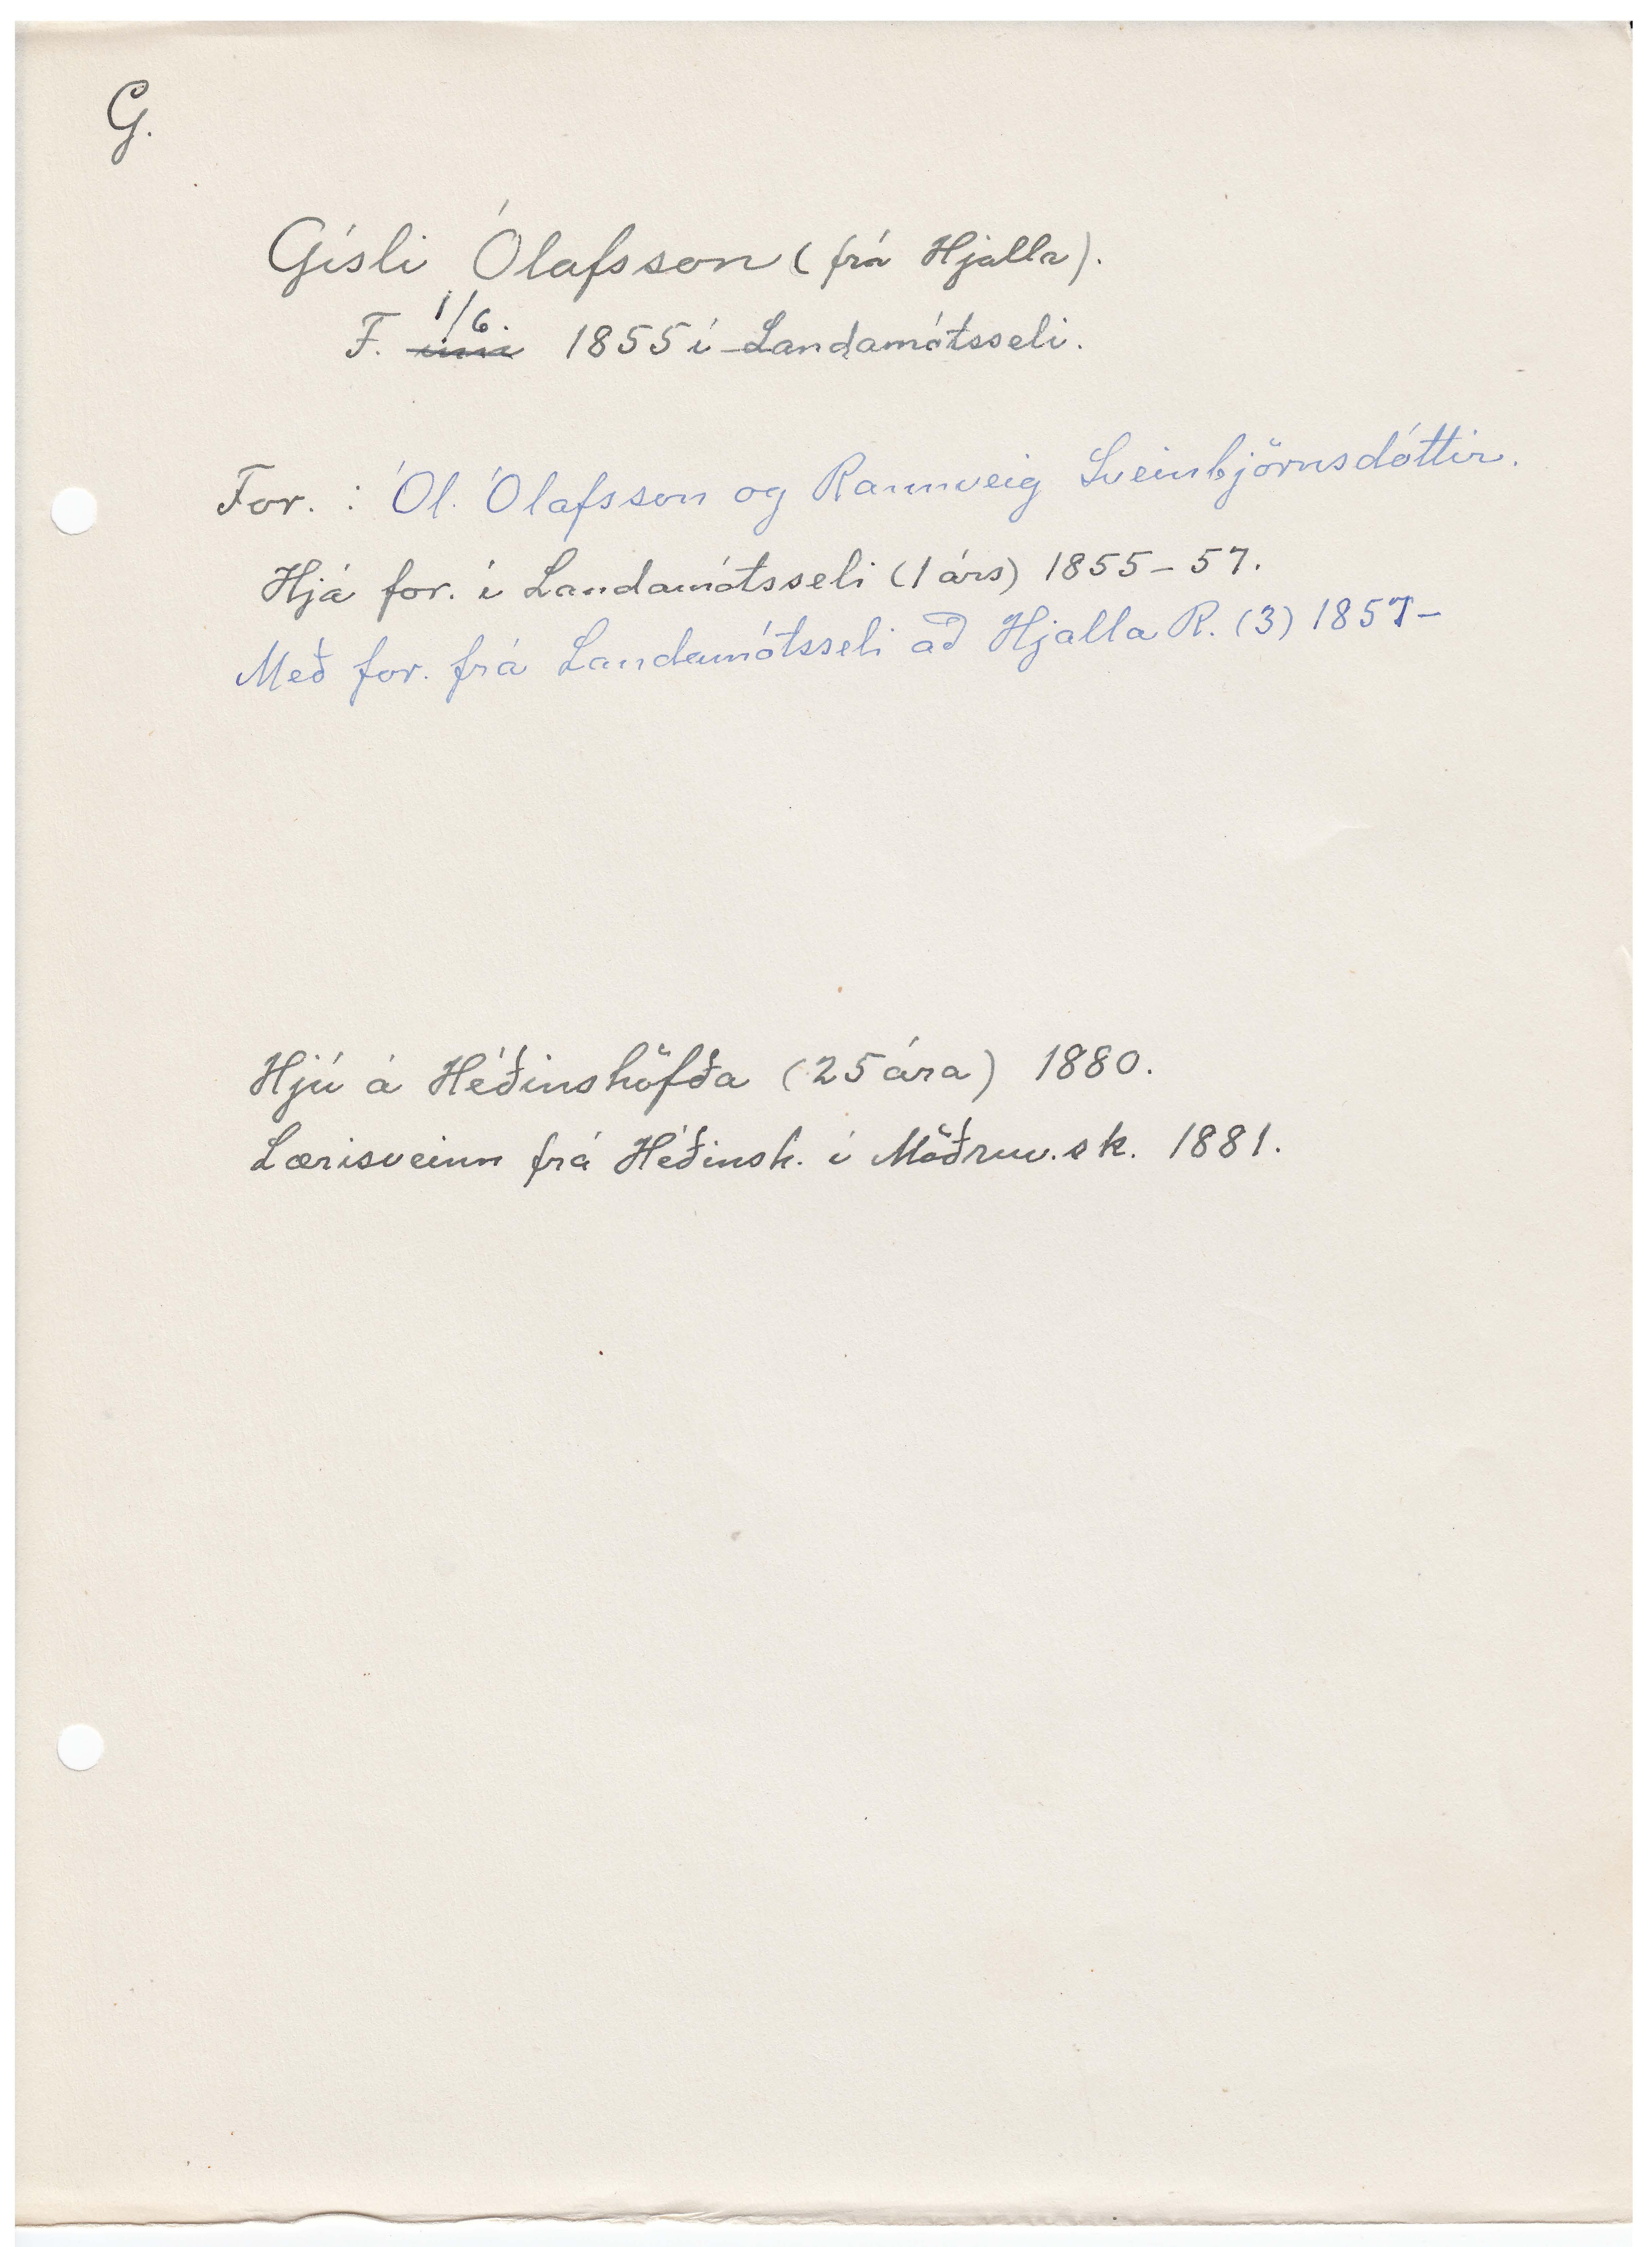 G.
Gísli Ólafsson (frá Hjalla).
1/6.
F. 1855 í Landamótsseli.
For. : Ól. Ólafsson og Rannveig Sveinbjörnsdóttir.
Hjá for. í Landamótsseli (1 árs) 1855 – 57.
Með for. frá Landamótsseli að Hjalla R. (3) 1857–
Hjú á Héðinshöfða (25 ára) 1880.
Lærisveinn frá Héðinsh. í Möðruv.sk. 1881.